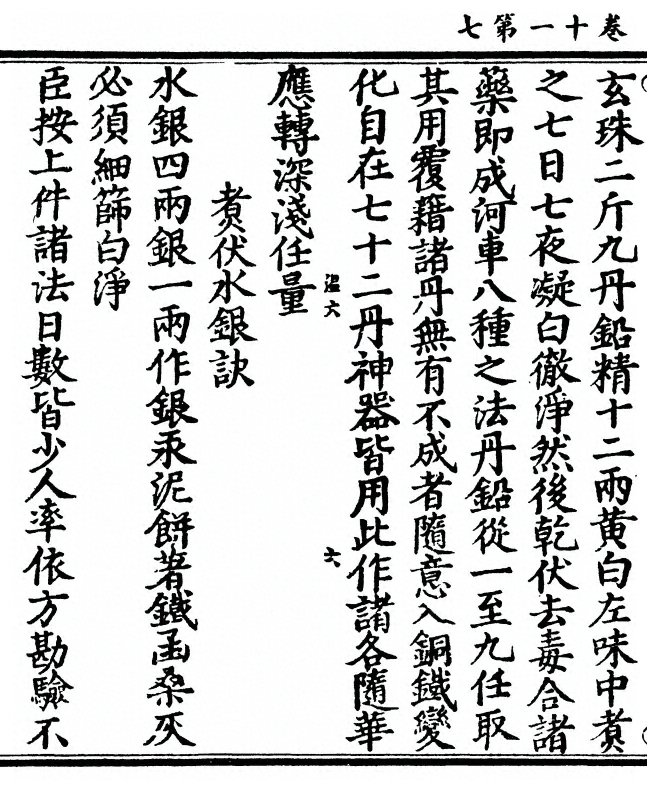 卷十一第七
玄珠二斤九丹鉛精十二兩黃白左味中煑
之七日七夜凝白徹淨然後乾伏去毒合諸
藥即成河車八種之法丹鉛從一至九任取
其用覆籍諸丹無有不成者隨意入銅鐵變
化自在七十二丹神器皆用此作諸各隨華
溫六
六
應轉深淺任量
煑伏水銀訣
水銀四兩銀一兩作銀汞泥餅著鐵函桑灰
必須細篩白淨
臣按上件諸法日數皆少人率依方勘驗不